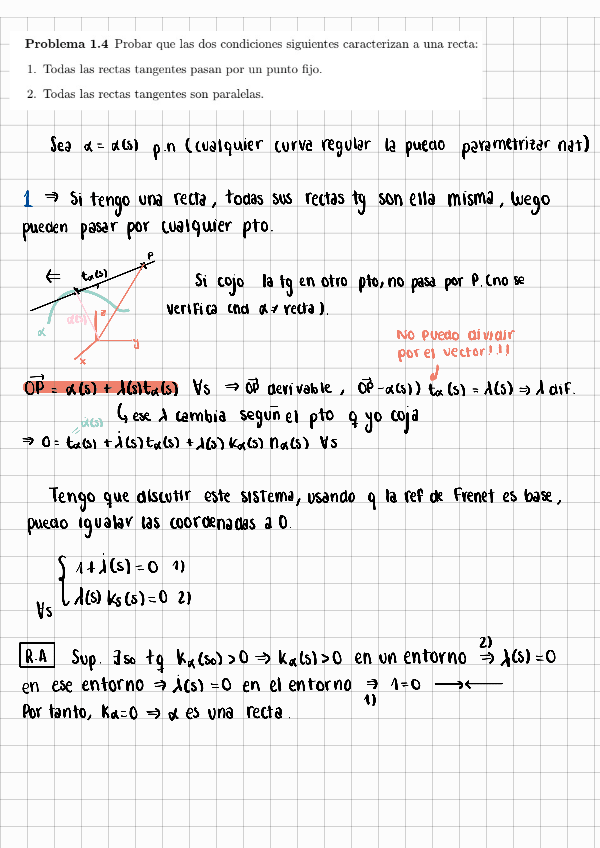 Problema 1.4 Probar que las dos condiciones siguientes caracterizan a una recta:
1. Todas las rectas tangentes pasan por un punto fijo.
2. Todas las rectas tangentes son paralelas.
Sea α = α(s) p.n (cualquier curva regular la puedo parametrizar nat)
1 ⇒ Si tengo una recta, todas sus rectas tg son ella misma, luego
pueden pasar por cualquier pto.
⇐ tα(s) P
Si cojo la tg en otro pto, no pasa por P. (no se
verifica cnd α ≠ recta).
α α(s) z
x y
No puedo dividir
por el vector!!!
OP = α(s) + λ(s)tα(s) ∀s ⇒ OP derivable, OP - α(s)) tα(s) = λ(s) ⇒ λ dif.
↳ ese λ cambia según el pto q yo coja
α̇(s)
⇒ 0 = tα(s) + λ̇(s)tα(s) + λ(s)kα(s)nα(s) ∀s
Tengo que discutir este sistema, usando q la ref de Frenet es base,
puedo igualar las coordenadas a 0.
1 + λ̇(s) = 0 1)
λ(s) ks(s) = 0 2)
∀s
R.A Sup. ∃s0 tq kα(s0) > 0 ⇒ kα(s) > 0 en un entorno 2)⇒ λ(s) = 0
en ese entorno ⇒ λ̇(s) = 0 en el entorno ⇒1) 1=0 →←
Por tanto, kα=0 ⇒ α es una recta.